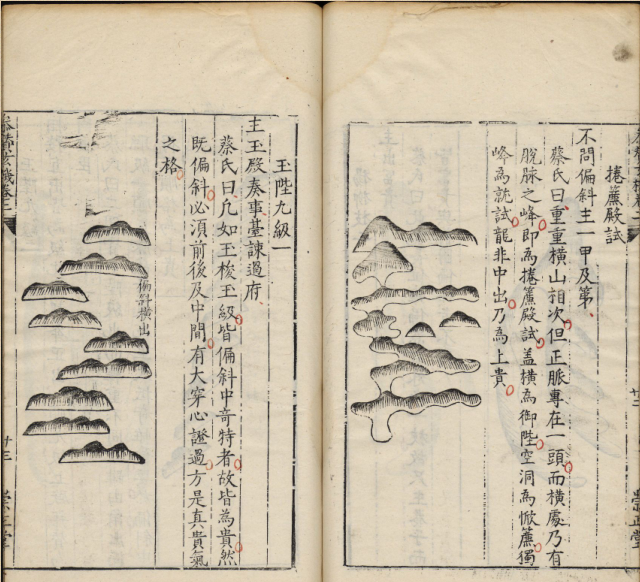 捲簾殿試
不問偏斜主一甲及第
蔡氏曰重重橫山相次但正脈專在一頭而橫處乃有
脫脉之峰即為捲簾殿試盖橫為御陛空洞為簾獨
峰為就試龍非中出乃為上貴
廿二
崇正堂
玉陛九級一
主玉殿奏事臺諫過府
蔡氏曰凡如玉梭玉級皆偏斜中奇特者故皆為貴然
既偏斜必湏前後及中間有大穿心證過方是真貴氣
之格
偏斜橫出
廿三
崇正堂